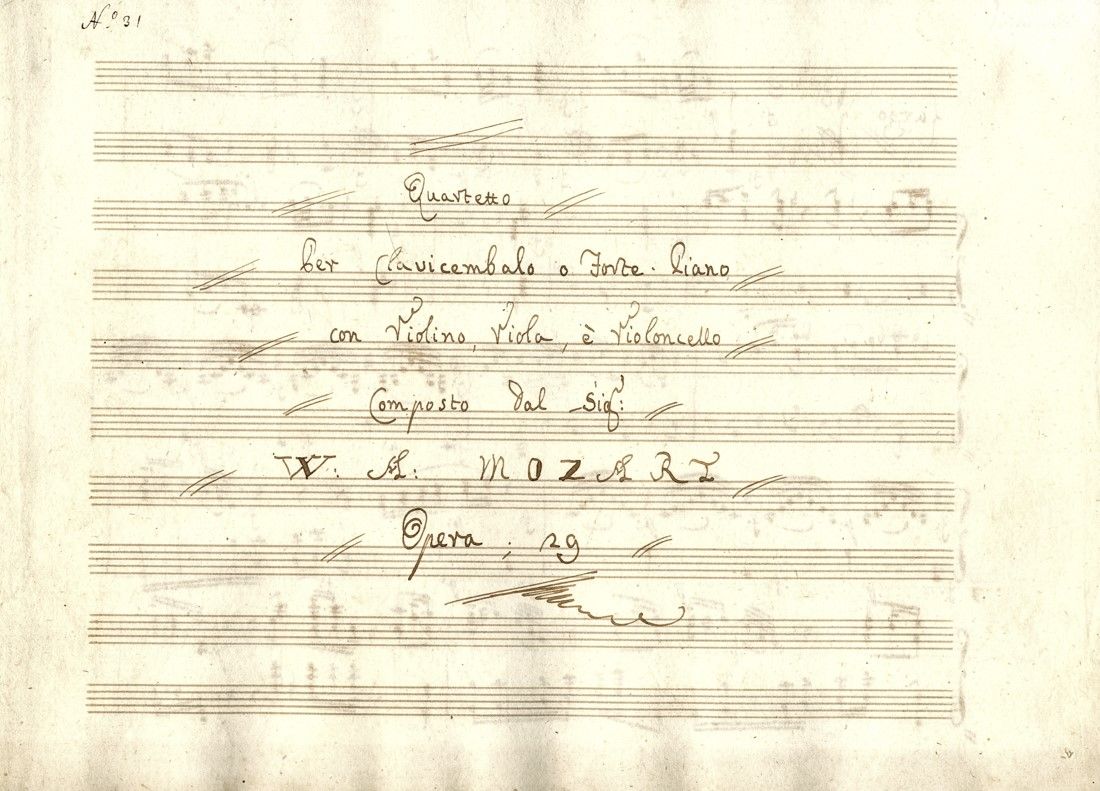 N.º 31
Quartetto
Per Clavicembalo o Forte-Piano
con Violino, Viola, è Violoncello
Composto Dal Sigr:
W: A: MOZART
Opera ; 29